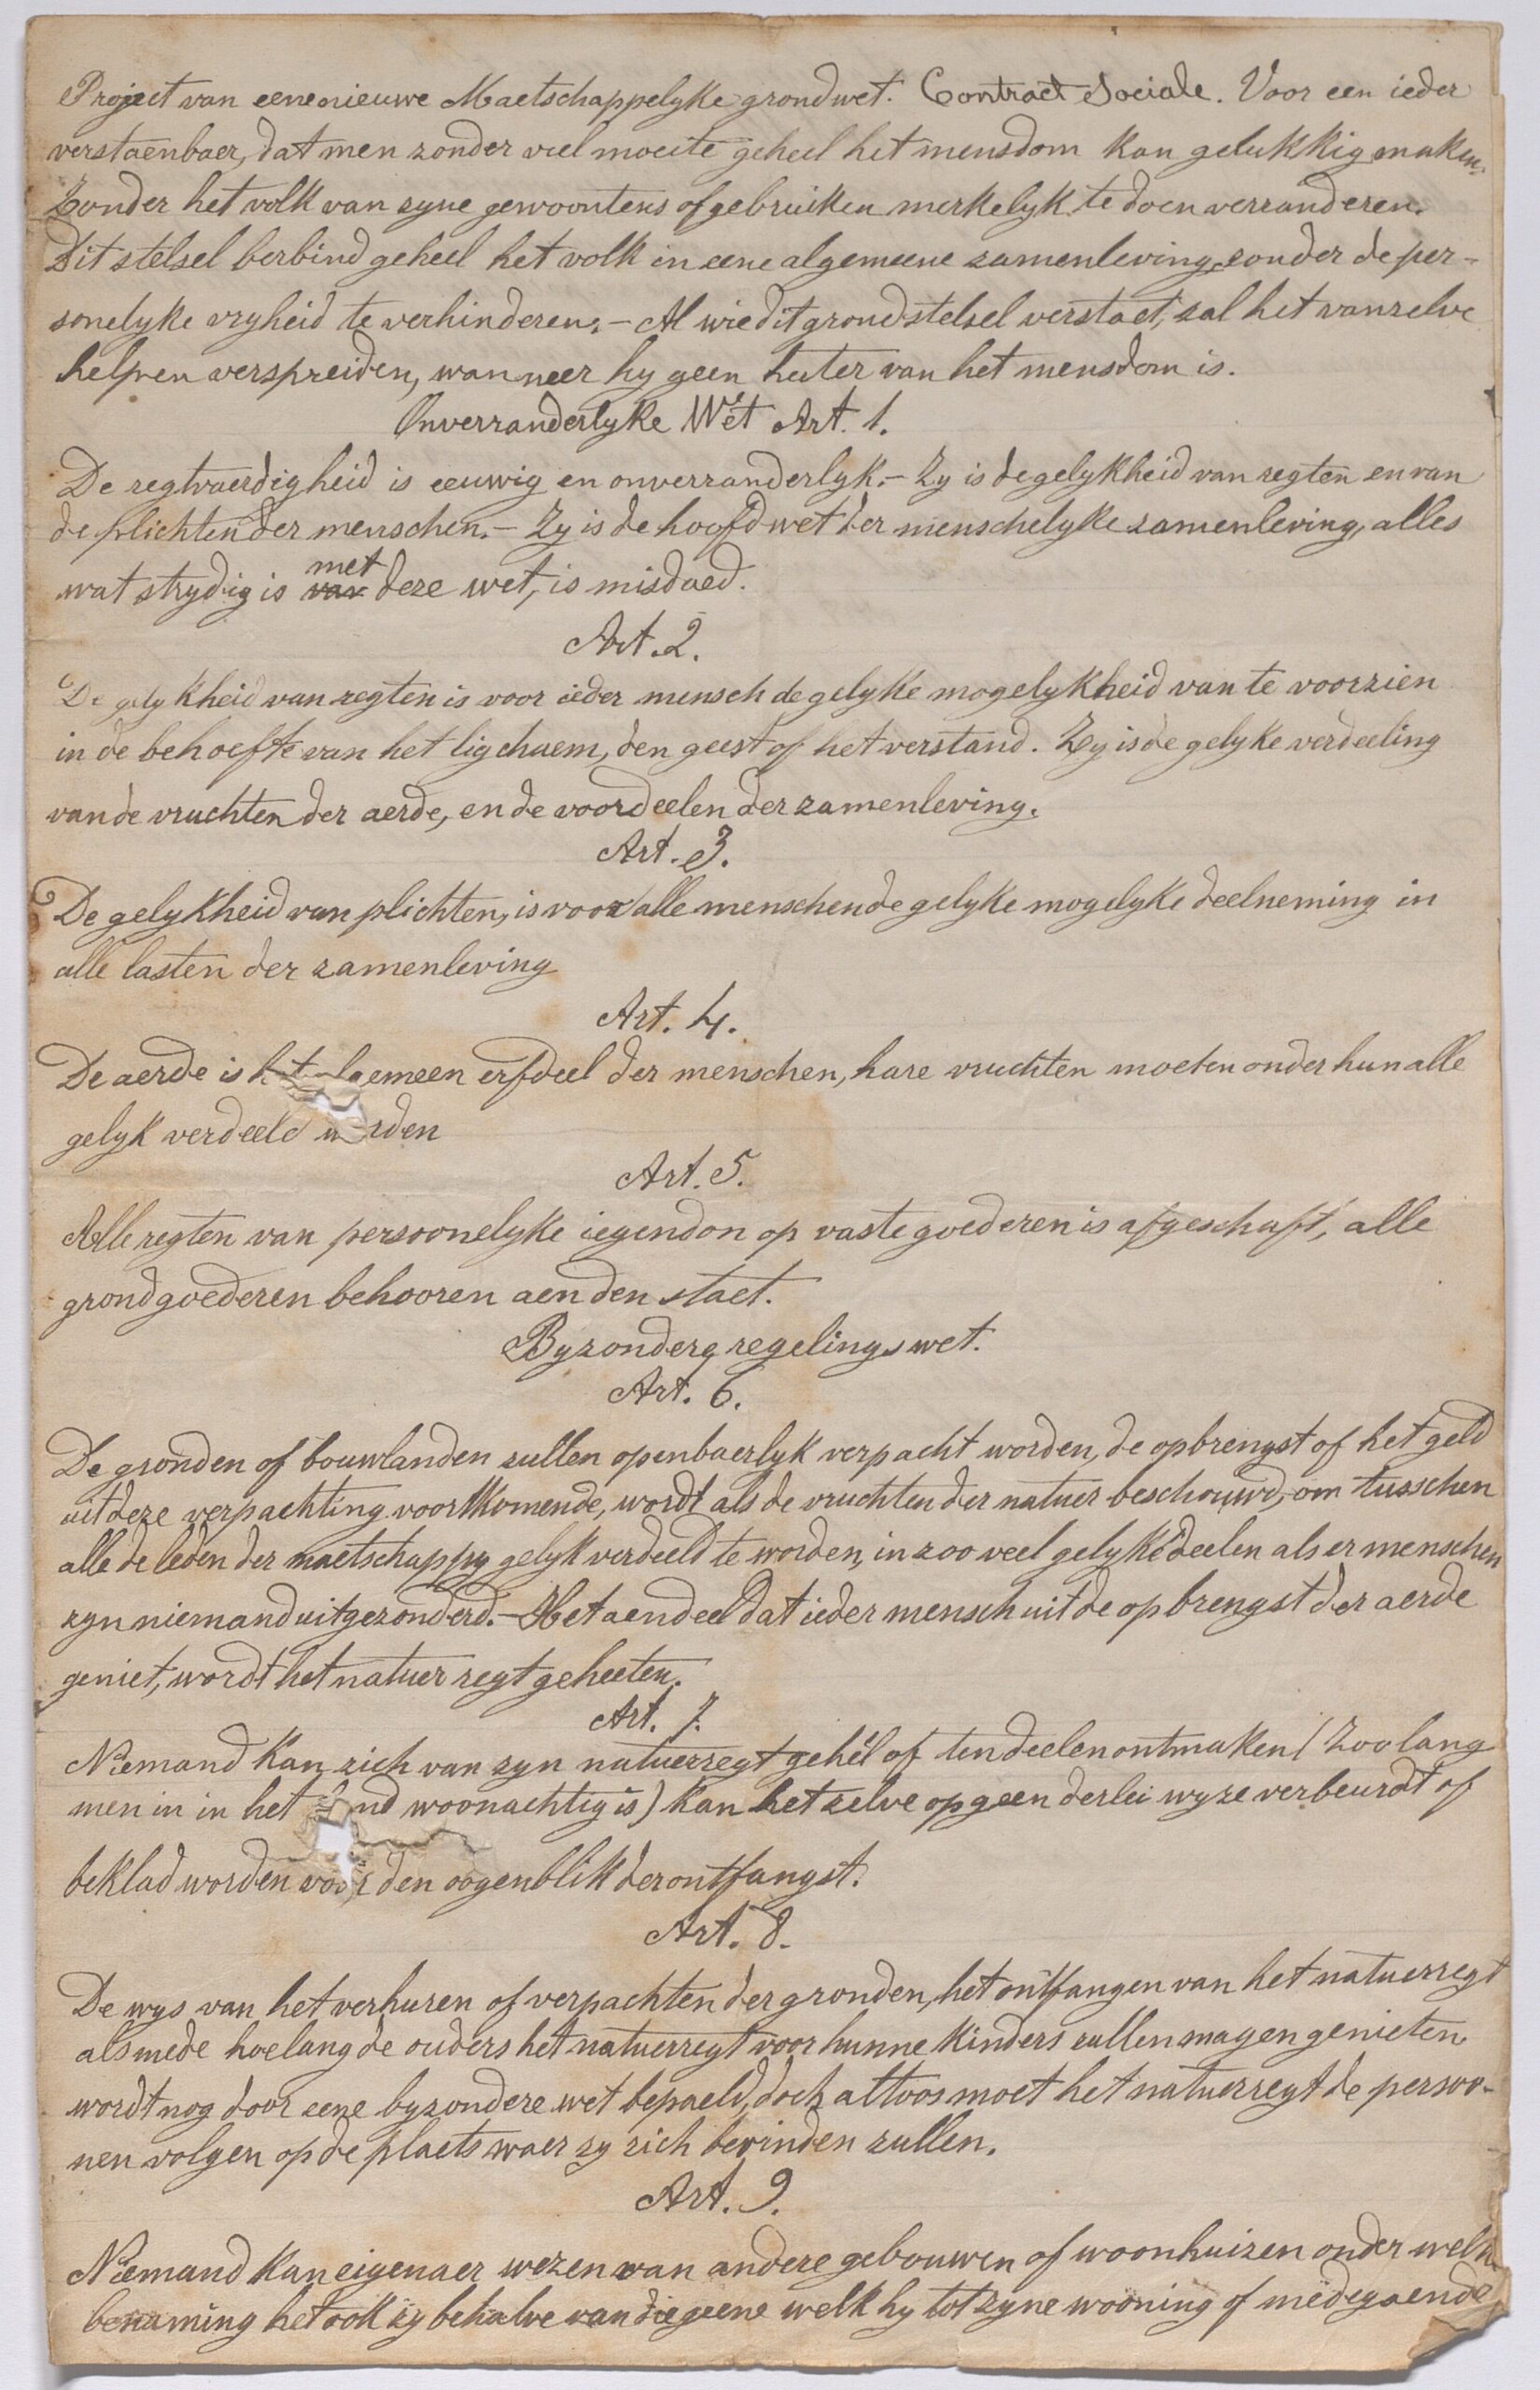 Project van eene nieuwe Maetschappelyke grondwet. Contract Sociale. Voor een ieder
verstaenbaer, dat men zonder veel moeite geheel het mensdom kan gelukkig maken.
Zonder het volk van zyne gewoontens of gebruiken merkelyk te doen verranderen.
Dit stelsel berbind geheel het volk in eene algemeene zamenleving, zonder de per-
sonelyke vryheid te verhinderen. – Al wie dit grondstelsel verstaet, zal het vanzelve
helpen verspreiden, wanneer hy geen hater van het mensdom is.
Onverranderlyke Wet Art. 1.
De regtvaerdigheid is eeuwig en onverranderlyk. – Zy is de gelykheid van regten en van
de plichten der menschen. – Zy is de hoofdwet der menschelyke zamenleving, alles
wat strydig is met deze wet, is misdaed.
Art. 2.
De gelykheid van regten is voor ieder mensch de gelyke mogelykheid van te voorzien
in de behoefte van het ligchaem, den geest of het verstand. Zy is de gelyke verdeeling
van de vruchten der aerde, en de voordeelen der zamenleving.
Art. 3.
De gelykheid van plichten, is voor alle menschen de gelyke mogelyke deelneming in
alle lasten der zamenleving
Art. 4.
De aerde is het algemeen erfdeel der menschen, hare vruchten moeten onder hun alle
gelyk verdeeld worden
Art. 5.
Alle regten van persoonelyke iegendon op vaste goederen is afgeschaft, alle
grondgoederen behooren aen den staet.
Byzondere regelings wet.
Art. 6.
De gronden of bouwlanden zullen openbaerlyk verpacht worden, de opbrengst of het geld
uit deze verpachting voortkomende, wordt als de vruchten der natuer beschouwd, om tusschen
alle de leden der maetschappy gelyk verdeeld te worden, in zoo veel gelyke deelen als er menschen
zyn niemand uitgezonderd. – Het aendeel dat ieder mensch uit de opbrengst der aerde
geniet, wordt het natuer regt geheeten.
Art. 7.
Niemand kan zich van zyn natuerregt gehel of ten deelen ontmaken (Zoo lang
men in in het land woonachtig is) kan het zelve op geenderlei wyze verbeurdt of
beklad worden voor den oogenblik der ontfangst.
Art. 8.
De wys van het verhuren of verpachten der gronden, het ontfangen van het natuerregt
alsmede hoelang de ouders het natuerregt voor hunne kinders zullen magen genieten
wordt nog door eene byzondere wet bepaeld, doch altoos moet het natuerregt de persoo-
nen volgen op de plaets waer zy zich bevinden zullen.
Art. 9.
Niemand kan eigenaer wezen van andere gebouwen of woonhuizen onder welke
benaming het ook zy behalve van diegeene welk hy tot zyne wooning of medegaende